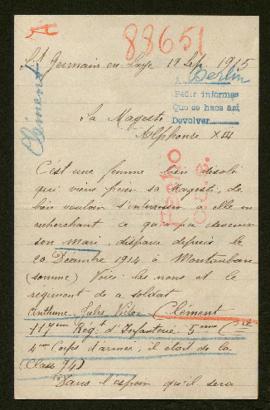 88651
St Germain en Laye 12 Sep 1915
Berlin
Pedir informes
Que se haga así
Devolver
Clément
Sa Magesté
Alphonse XIII
C'est une femme bien desolé
qui viens prier sa Magesté, de
bien vouloir s'interesser à elle en
recherchant ce qu'a pu devenir
son mari, disparu depuis le
20 Decembre 1914 à Montauban
(somme) Voici les noms et le
régiment de ce soldat
Anthime Jules Victor Clément
117ème Regt d'Infanterie 5ème Cie
4me Corps d'armée; il était de la
(Class 94)
Dans l'espoir qu'il sera